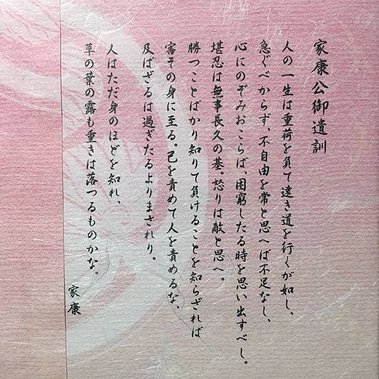 家康公御遺訓
人の一生は重荷を負て遠き道を行くが如し、
急ぐべからず、不自由を常と思へば不足なし、
心にのぞみおこらば、困窮したる時を思い出すべし。
堪忍は無事長久の基。怒りは敵と思へ。
勝つことばかり知りて負けることを知らざれば
害その身に至る。己を責めて人を責めるな、
及ばざるは過ぎたるよりまされり。
人はただ身のほどを知れ、
草の葉の露も重きは落つるものかな。
家康